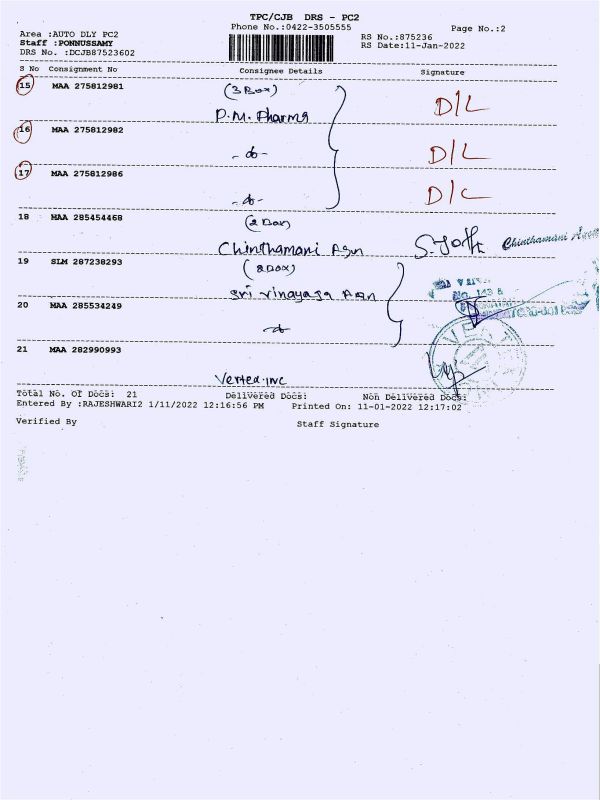 TPC/CJB DRS - PC2
Phone No.:0422-3505555
Page No.:2
Area :AUTO DLY PC2
RS No.:875236
Staff :PONNUSSAMY
RS Date:11-Jan-2022
DRS No. :DCJB87523602
S No Consignment No Consignee Details Signature
15 MAA 275812981 (3 Box)
P.M. Pharma D/L
16 MAA 275812982
-do- D/L
17 MAA 275812986
-do- D/L
18 MAA 285454468 (2 Box)
Chinthamani Agen Chinthamani
19 SLM 287238293 (2 Box)
Sri Vinayaga Agen
20 MAA 285534249
-do-
21 MAA 282990993
Vertex.inc
Total No. Of Docs: 21 Delivered Docs: Non Delivered Docs:
Entered By :RAJESHWARI2 1/11/2022 12:16:56 PM Printed On: 11-01-2022 12:17:02
Verified By Staff Signature